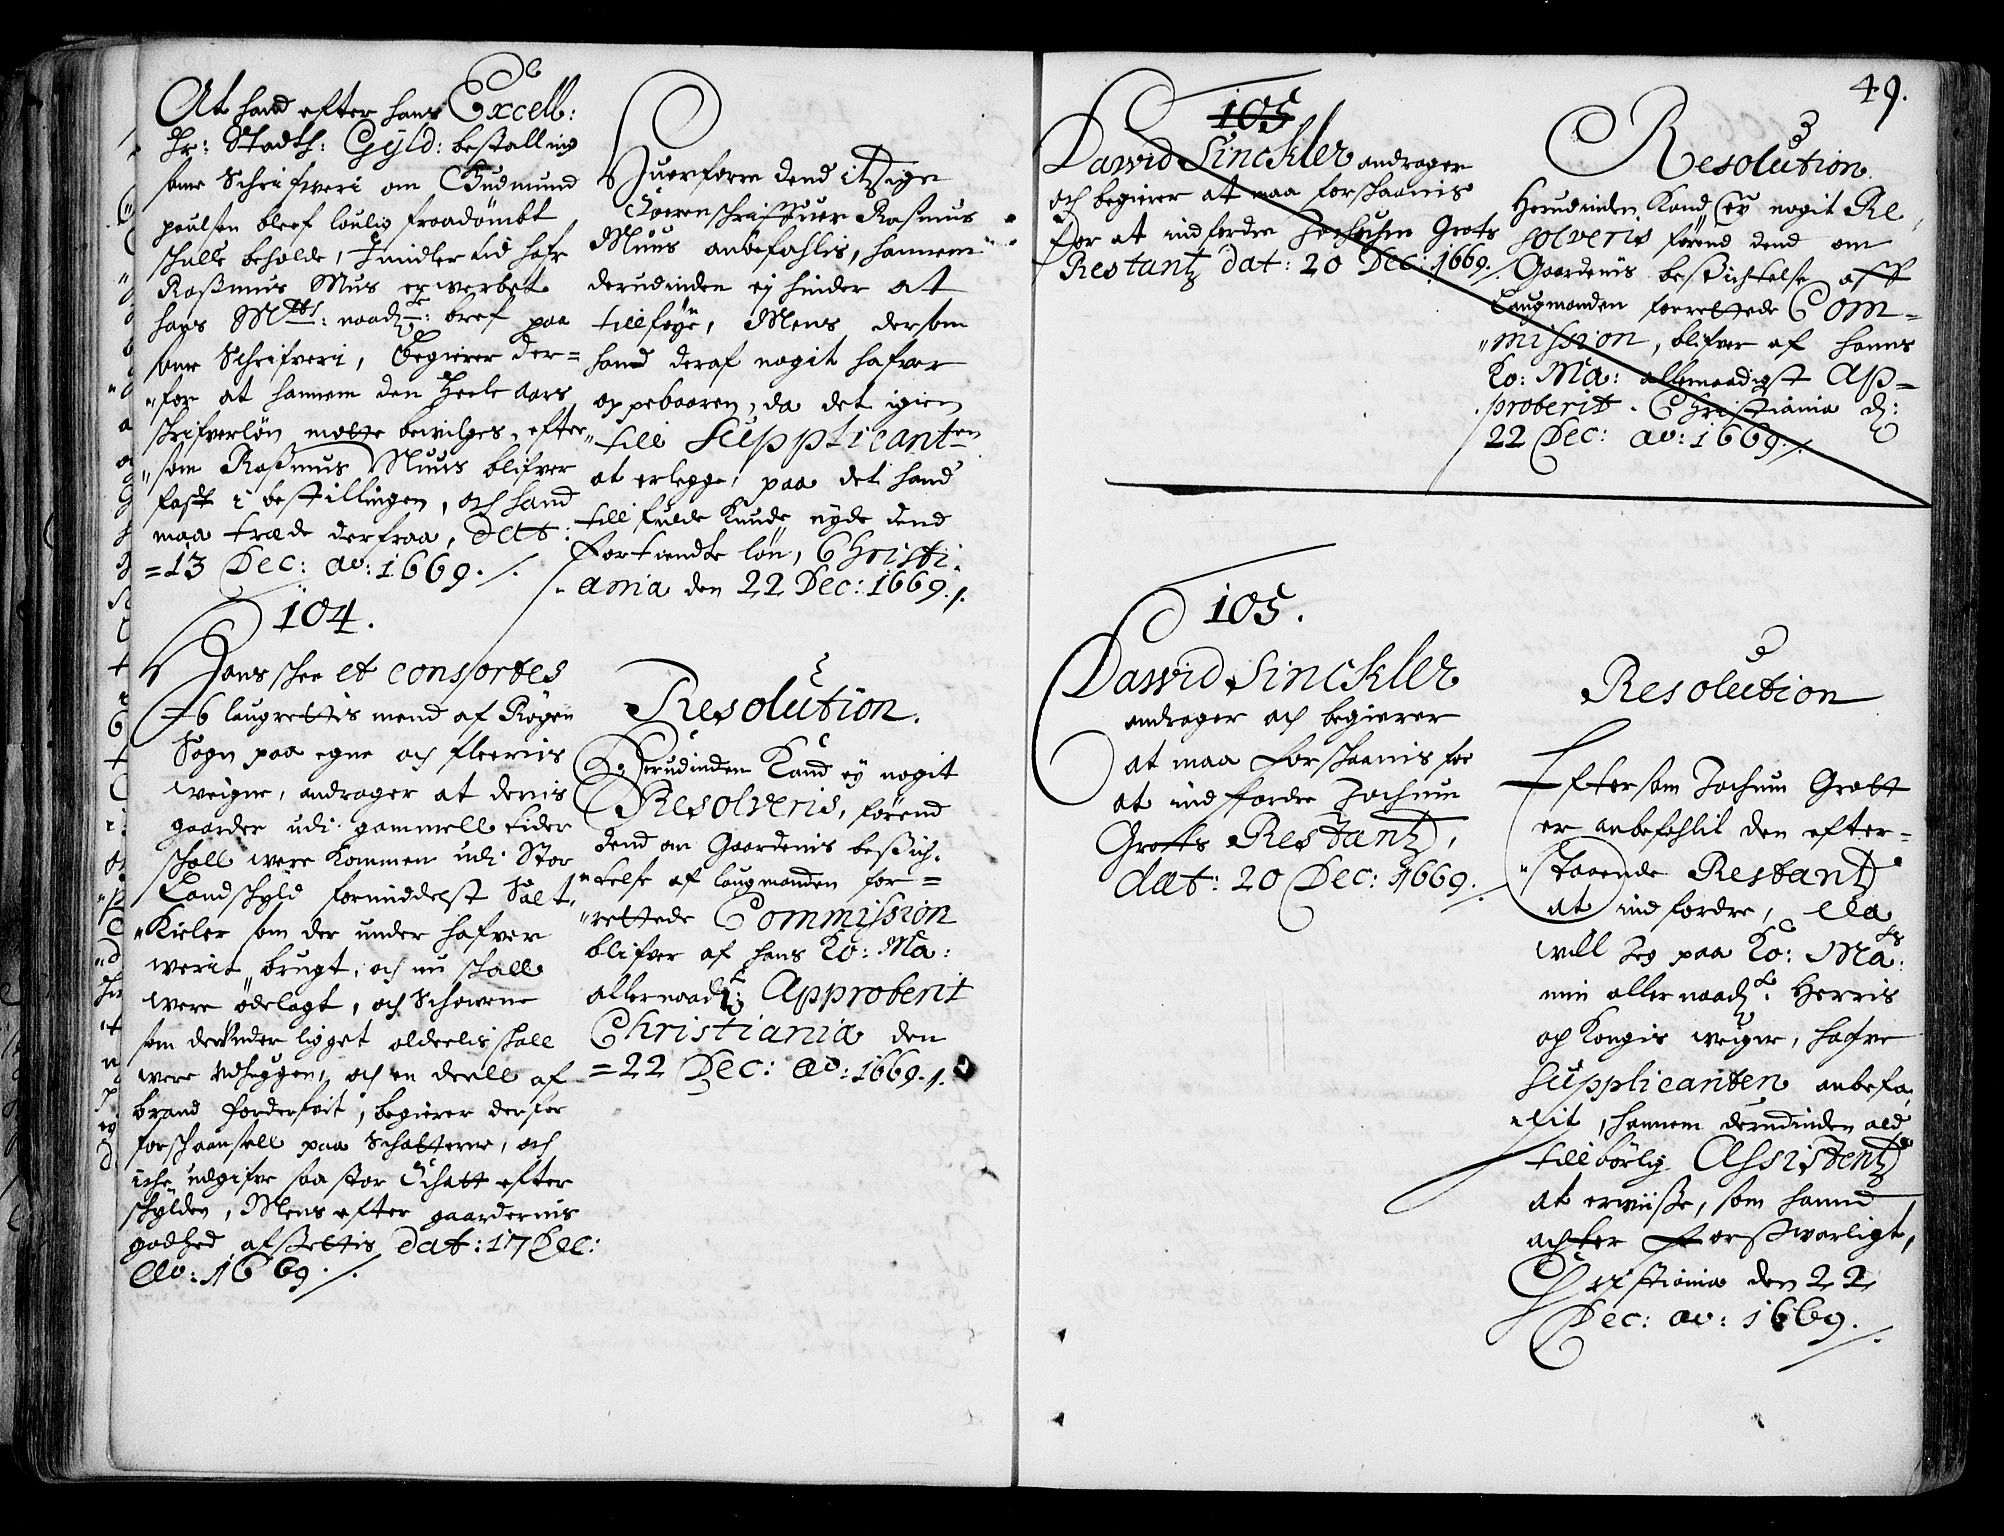 At hand efter hans Excell:
Hr: Stadth: Gyld: bestalling
som Schrifweri om Gudmund
poulsen bleef loulig fraadömbt,
skulle beholde, Imidler tid hafr
Rasmus Mus er werbet
hans Maÿts: naadz: bref paa
som Schrifveri, Begierer der=
"for at hannem den Heele aars
schrifverlön motte bewilges, efter
"som Rasmus Muus blifver
fast i bestillingen, och hand
maa træde derfraa, dat:
=13 Dec: ao: 1669./.
104.
Hans schee et consortes
16 laugrettis mend af Røgen
Sogn paa egne och fleeris
weigne, andrager at deris
gaarder udi gammell tider
schall were kommen udi stor
Landschyld formiddelst Salt
"Kieler som der under hafver
werit brugt, och nu schall
were ödelagt, och Schowene
som derunder ligget aldeelis schall
were udhuggen, och en deell af
brand forderfvit, begierer derfor
forschaansell paa Schatterne, och
iche udgifve saa stor Schatt efter
schylden, Mens efter gaardernis
godhed afsettis dat: 17 Dec:
Ao: 1669./.
Huorforre dend itzige
Toerenschriffuer Rasmus
Muus anbefahlis, hannem
derudinden ej hinder at
tillføye, Mens dersom
hand deraf nogit hafver
oppebaaren, da det igien
till Supplicanten
at erlegge, paa det hand
till fulde kunde nyde dend
fortiendte løn, Christi
ania den 22 Dec: 1669./.
Resolution.
Herudinden kand ey nogit
Resolveris, førend
dend om Gaardenis besich=
"telse af laugmanden for=
"rettede Commission
blifver af hans Ko: Ma:
allernaadz: Approberit
Christiania den
=22 Dec: Ao: 1669./.
49.
105
Dawid Sinckler andrager
och begierer at maa forschaanis
for at indfordre Jochum Grots
Restantz dat: 20 Dec: 1669./
Resolution.
Herudinden kand ey nogit Re
solveris førend dend om
Gaardenis besichtelse aff
Laugmanden forrettede Com=
"mission, blifver af hanns
Ko: Ma: allernaadigst Ap=
proberit. Christiania d:
22 Dec: ao: 1669./.
105.
Dawid Sinckler
andrager och begierer
at maa forschaanis for
at indfordre Jochum
Grotts Restantz,
dat: 20 Dec: 1669./.
Resolution
Eftersom Jochum Grott
er anbefahlit den efter=
"staaende Restantz
at indfordre, Da
will Jeg paa Ko: Maÿs:
min allernaadz: Herris
och Kongis weigne, hafve
Supplicanten anbefa
"lit, hannem derudinden ald
tillbørlig Assistentz
at erwiisse, som hannd
achter forswarligt,
Christiania den 22
Dec: ao: 1669./.